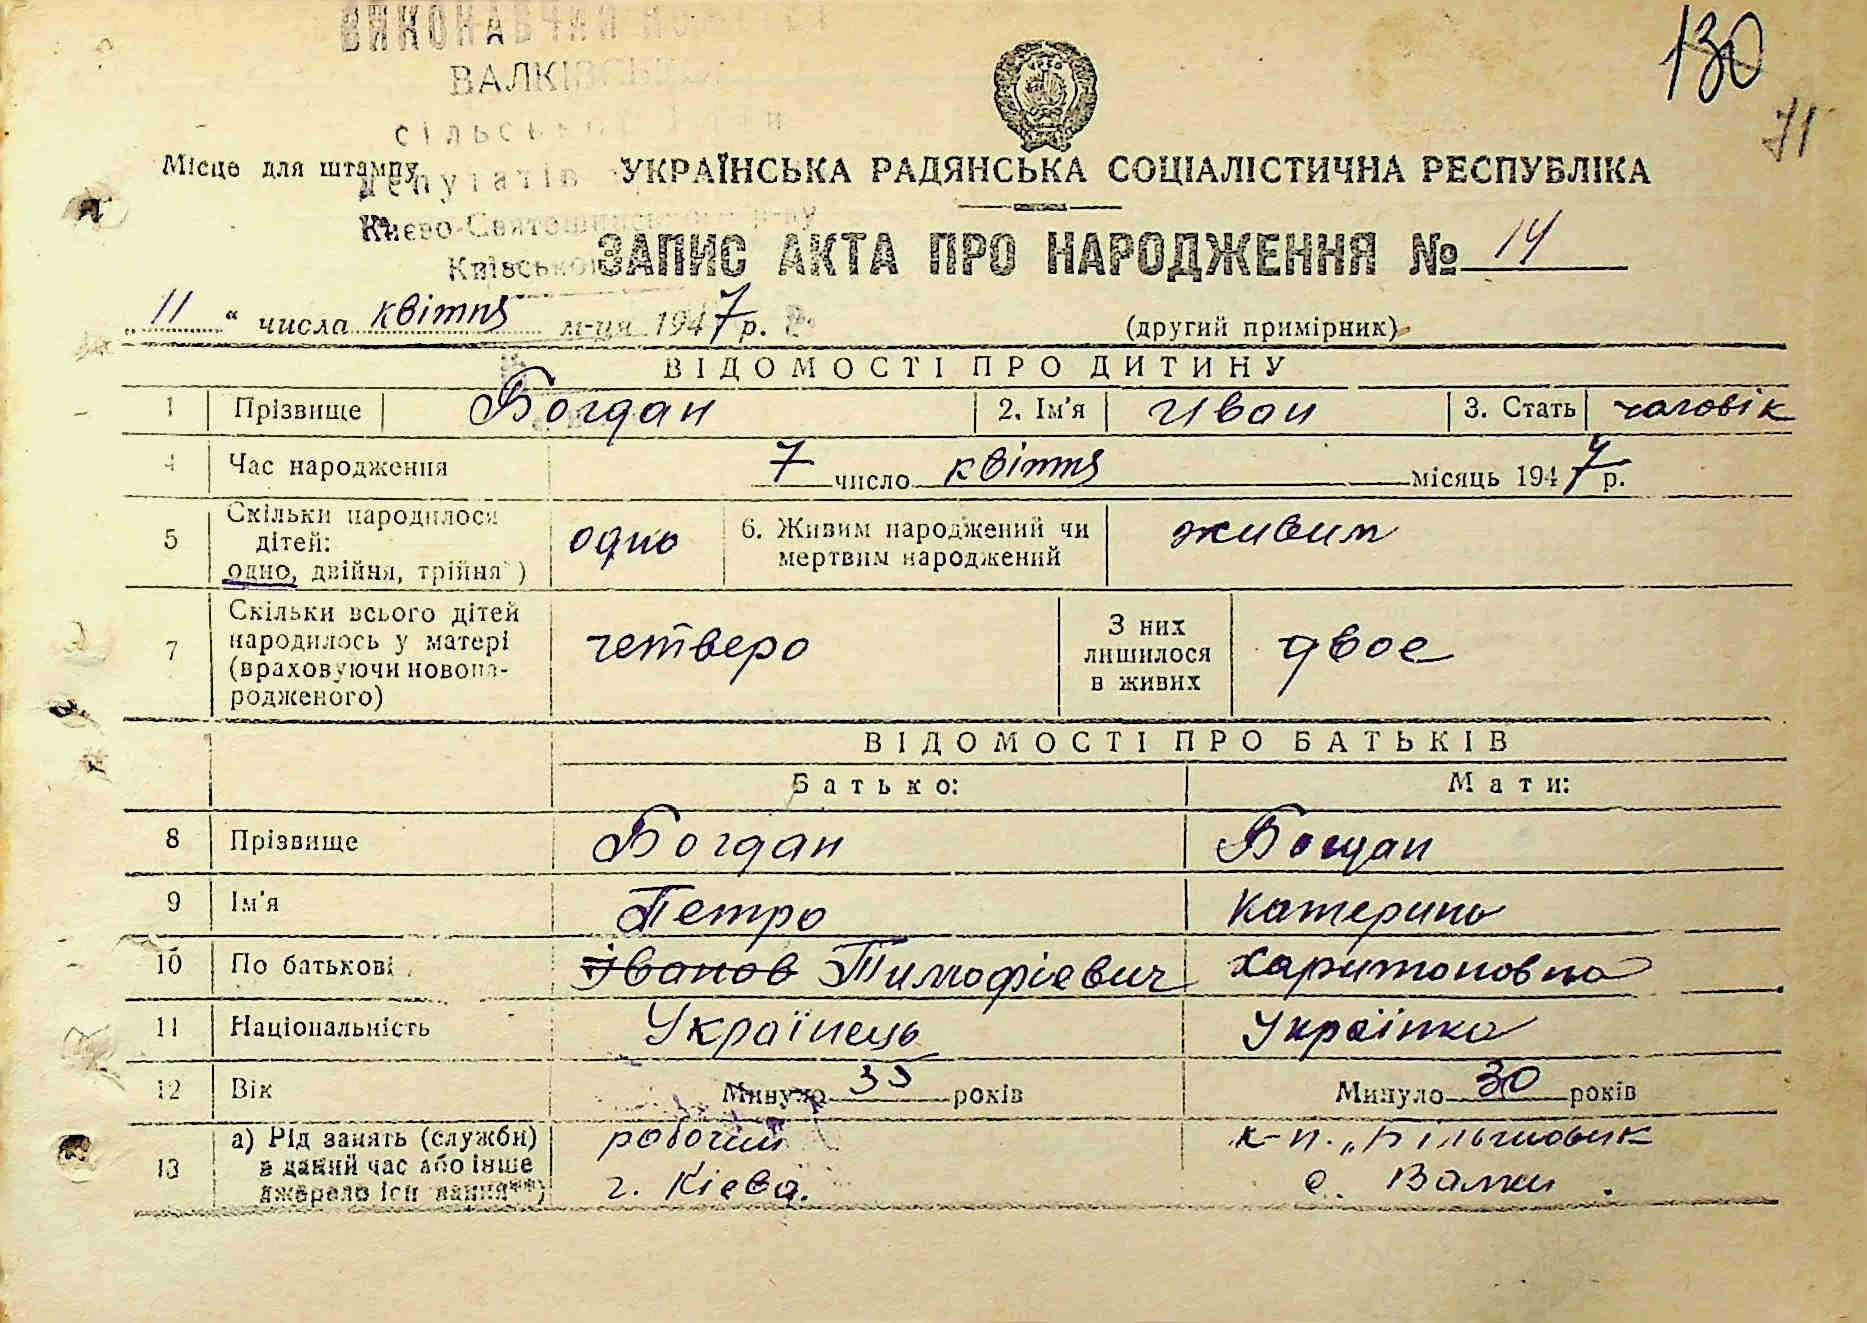 130
71
ВИКОНАВЧИЙ
ВАЛКІВСЬКОЇ
сільської
депутатів
Києво-Святошинського р-ну
Київської
Місце для штампу
УКРАЇНСЬКА РАДЯНСЬКА СОЦІАЛІСТИЧНА РЕСПУБЛІКА
ЗАПИС АКТА ПРО НАРОДЖЕННЯ № 14
„11“ числа квітня м-ця 1947 р.
(другий примірник)
ВІДОМОСТІ ПРО ДИТИНУ
1 Прізвище Богдан 2. Ім'я Иван 3. Стать чоловік
4 Час народження 7 число квітня місяць 1947 р.
5 Скільки народилося дітей: одно, двійня, трійня*) одно 6. Живим народжений чи мертвим народжений живим
7 Скільки всього дітей народилось у матері (враховуючи новона-родженого) четверо З них лишилося в живих двое
ВІДОМОСТІ ПРО БАТЬКІВ
Батько: Мати:
8 Прізвище Богдан Богдан
9 Ім'я Петро Катерина
10 По батькові Іванов Тимофієвич Харитоновна
11 Національність Українець Українка
12 Вік Минуло 35 років Минуло 30 років
13 а) Рід занять (служби) в даний час або інше джерело існування**) робочий к-п. „Більшовик
г. Кієва. с. Валки.